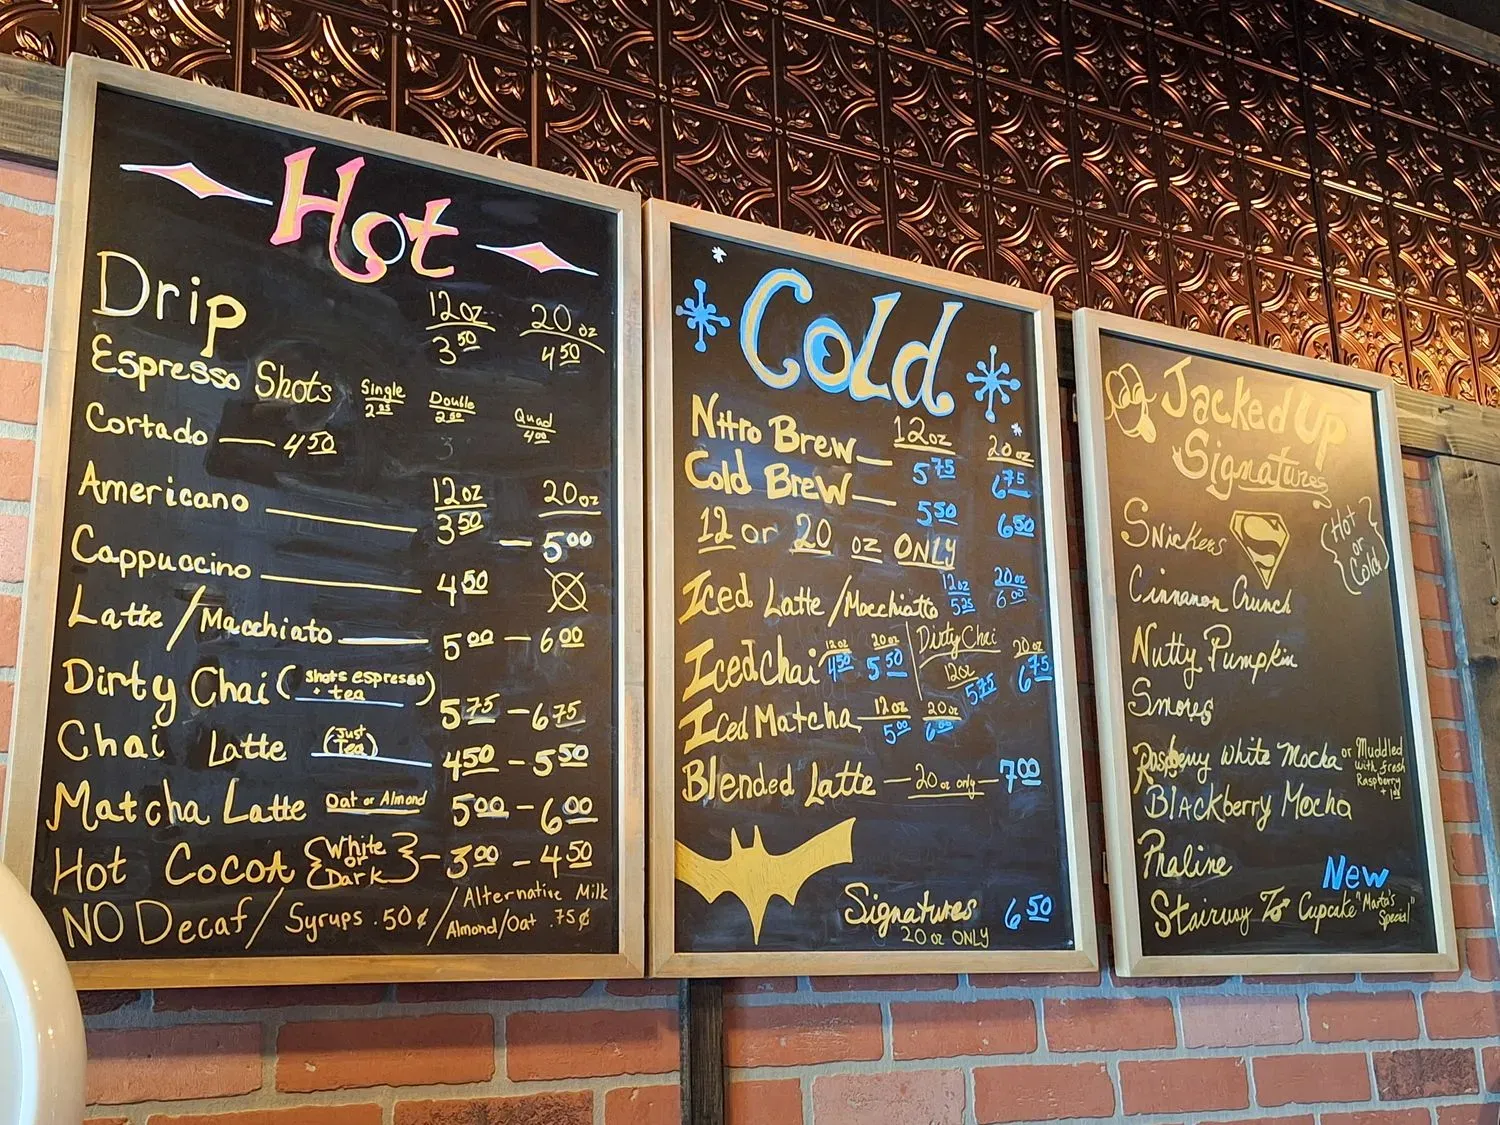 Hot
Drip 12oz 20oz
3.50 4.50
Espresso Shots Single Double Quad
4.00
Cortado — 4.50
Americano 12oz 20oz
3.50 — 5.00
Cappuccino 4.50
Latte / Macchiato 5.00 — 6.00
Dirty Chai (shots espresso + tea) 5.75 — 6.75
Chai Latte (Just Tea) 4.50 — 5.50
Matcha Latte Oat or Almond 5.00 — 6.00
Hot Cocoa {White or Dark} — 3.00 — 4.50
NO Decaf / Syrups .50¢ / Alternative Milk
Almond/Oat .75¢
Cold
12oz 20oz
Nitro Brew — 5.75 6.75
Cold Brew — 5.50 6.50
12 or 20 oz ONLY
Iced Latte / Macchiato 12oz 20oz
5.25 6.00
Iced Chai 12oz 4.50 20oz 5.50
Dirty Chai 12oz 5.75 20oz 6.75
Iced Matcha 12oz 5.00 20oz
Blended Latte — 20oz only — 7.00
Signatures 6.50
20oz ONLY
Jacked Up
Signatures
{Hot or Cold}
Snickers
S
Cinnamon Crunch
Nutty Pumpkin
Smores
Raspberry White Mocha or Muddled with fresh Raspberry
Blackberry Mocha
Praline
New
Stairway To Cupcake "Marta's Special"